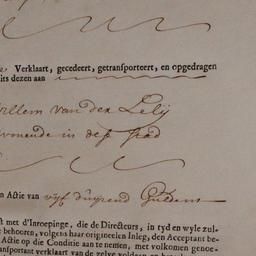 Verklaart, gecedeert, getransporteert, en opgedragen
its dezen aan
Willem van der Lelij
wonende in des stad
n Actie van vijf duijzend Guldens
t met d'Inroepinge, die de Directeurs, in tyd en wyle zul-
behooren, volgens haar origineelen Inleg, den Acceptant be-
Actie op die Conditie aan te nemen, met volkomen genoe-
ansportant verklaart van de zelve voldaan en